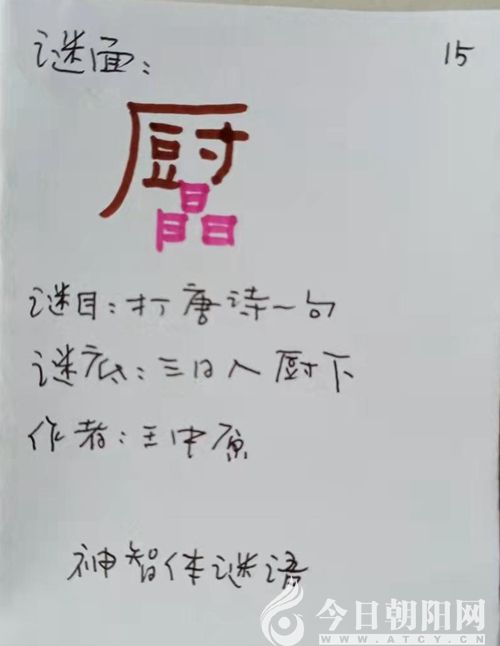 谜面： 15
厨
晶
谜目：打唐诗一句
谜底：三日入厨下
作者：王中原
神智体谜语
今日朝阳网
WWW.ATCY.CN